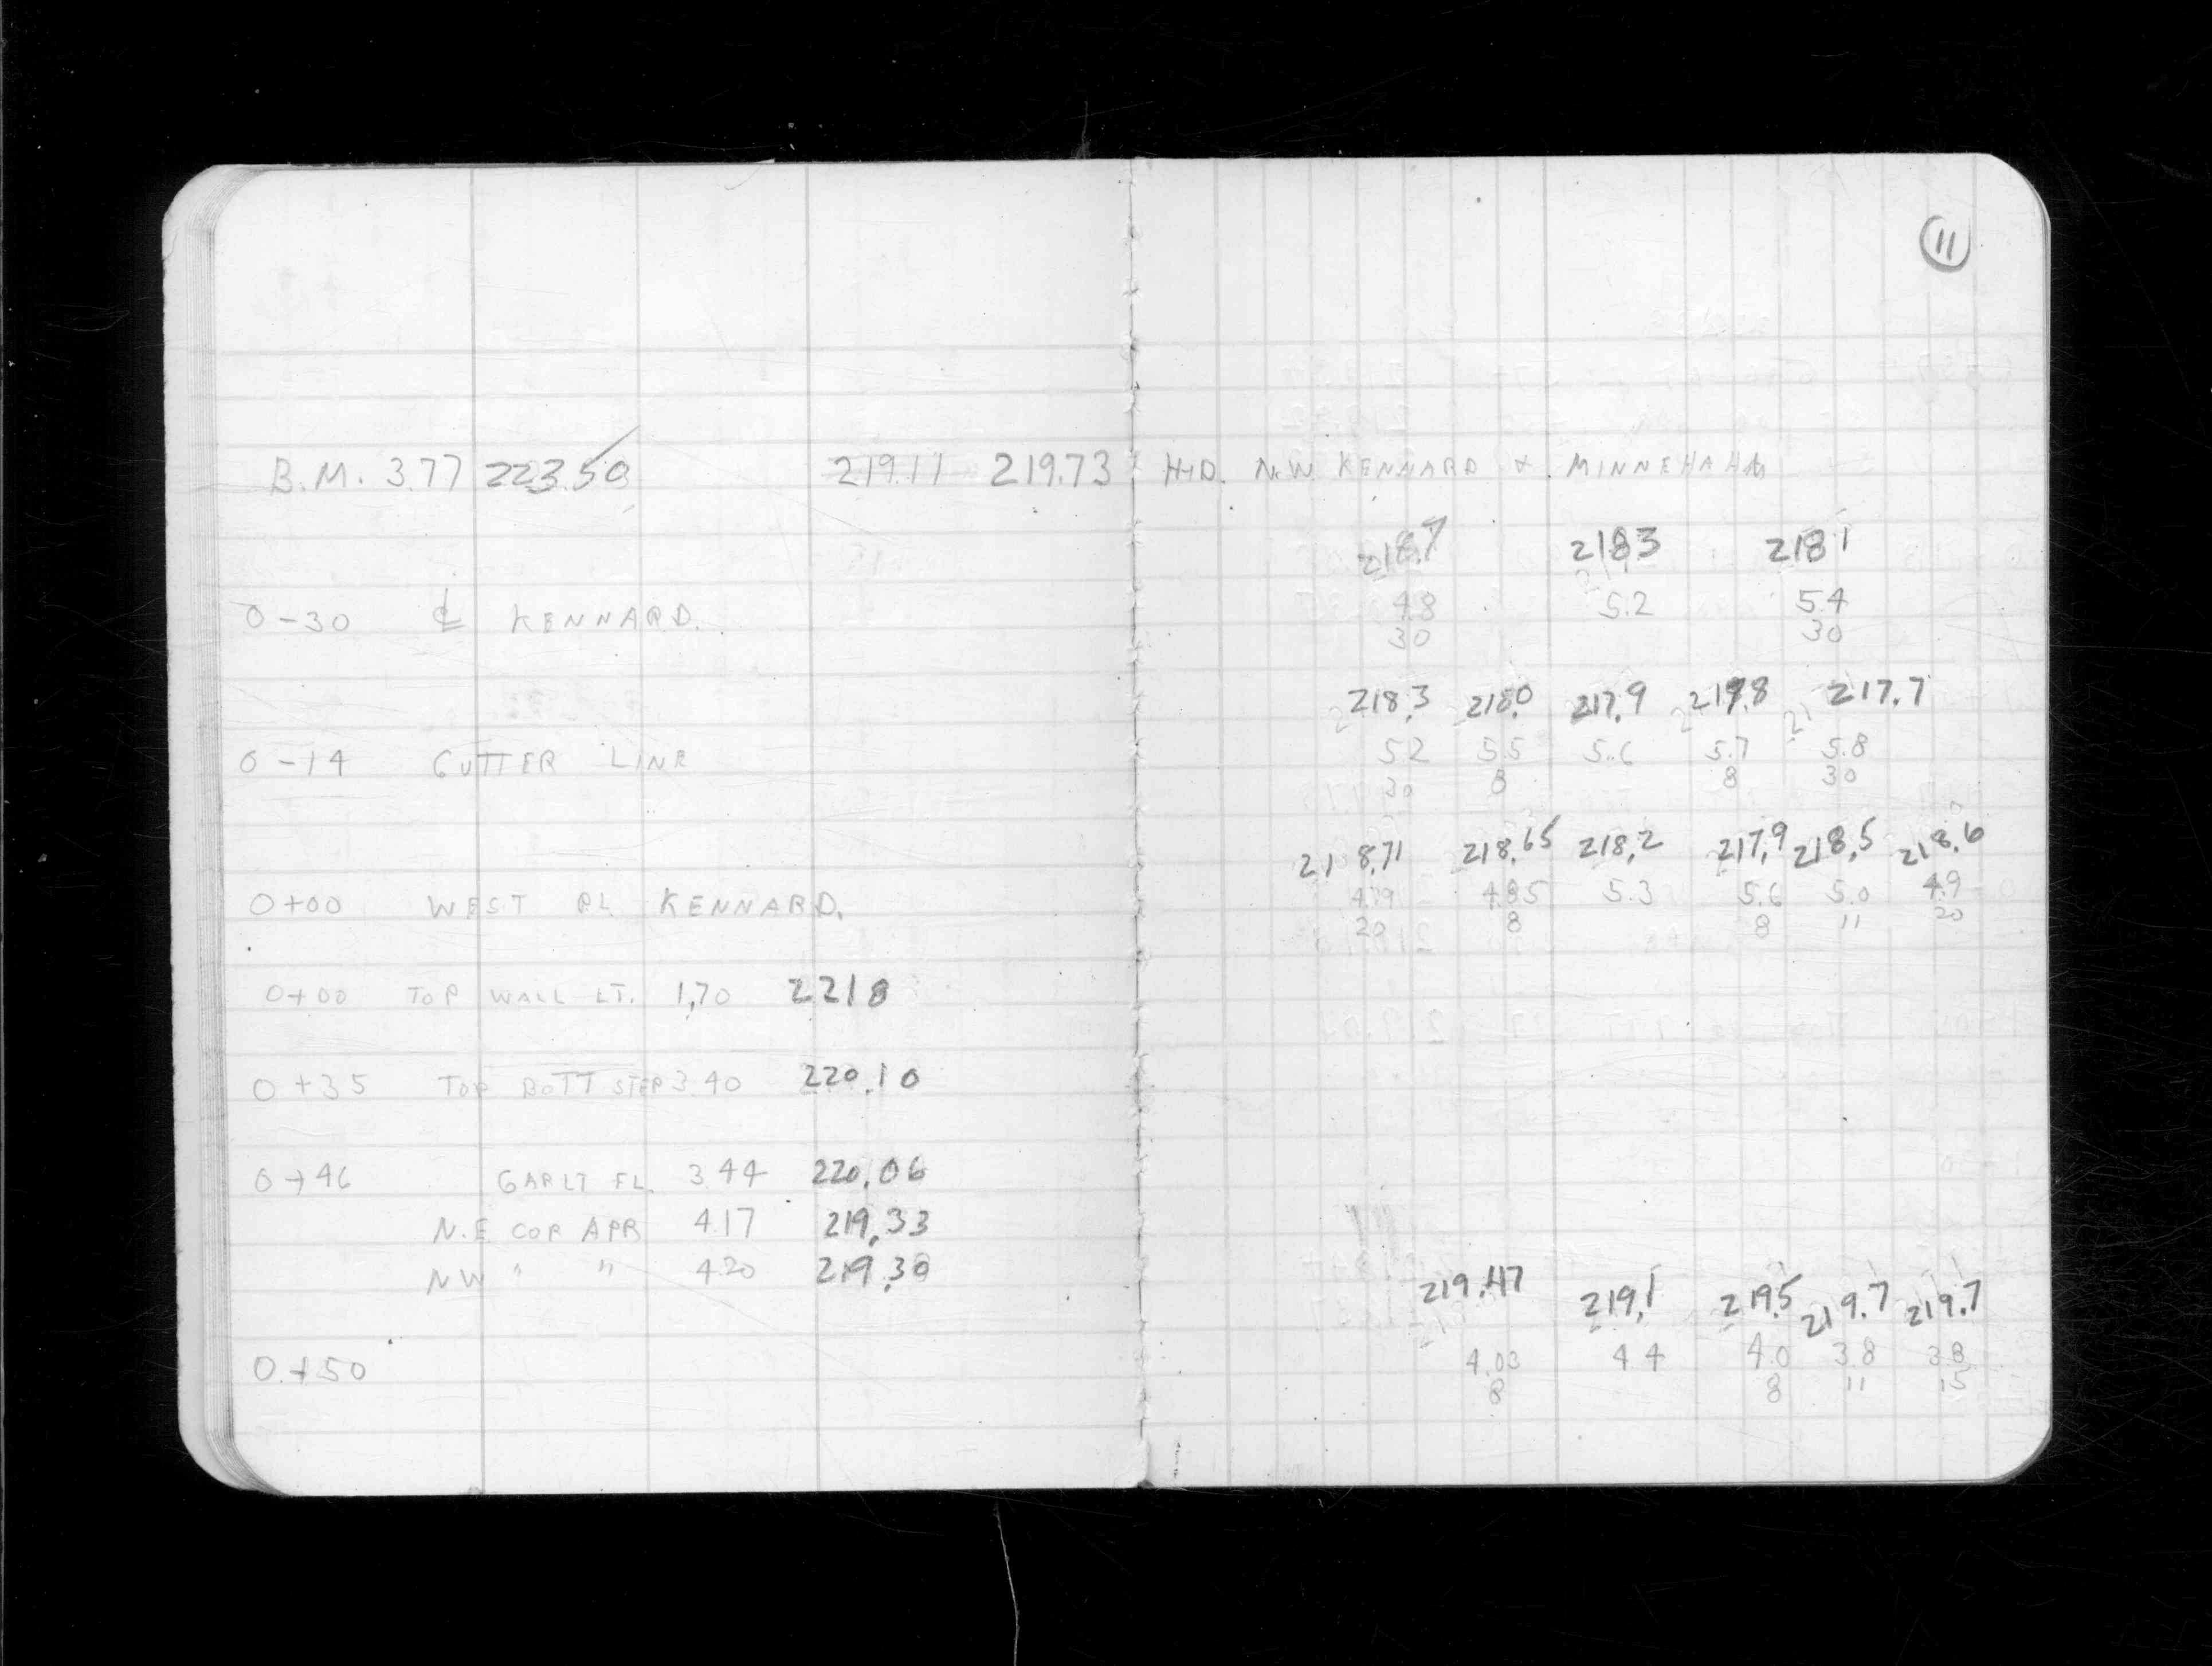 11
B.M. 3.77 223.50 219.11 219.73 HYD. N.W. KENNARD & MINNEHAHA
218.7 218.3 218.1
0-30 ℄ KENNARD. 4.8 5.2 5.4
30 30
218.3 218.0 217.9 217.8 217.7
0-14 GUTTER LINE 5.2 5.5 5.6 5.7 5.8
30 8 8 30
218.71 218.65 218.2 217.9 218.5 218.6
0+00 WEST PL KENNARD. 4.79 4.85 5.3 5.6 5.0 4.9
20 8 8 11 20
0+00 TOP WALL LT. 1.70 221.8
0+35 TOP BOTT STEP 3.40 220.10
0+46 GAR LT FL. 3.44 220.06
N.E COR APR 4.17 219.33
NW " " 4.20 219.30
219.47 219.1 219.5 219.7 219.7
0+50 4.03 4.4 4.0 3.8 3.8
8 8 11 15